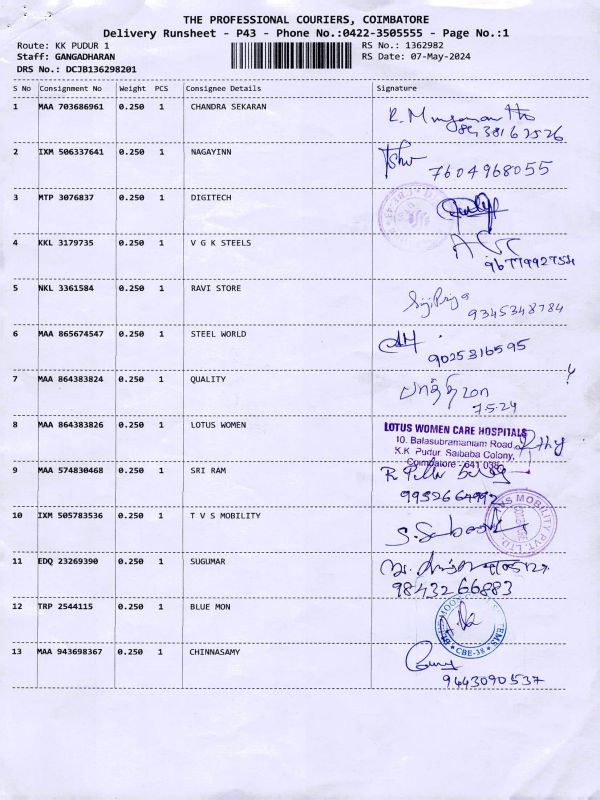 THE PROFESSIONAL COURIERS, COIMBATORE
Delivery Runsheet - P43 - Phone No.:0422-3505555 - Page No.:1
Route: KK PUDUR 1 RS No.: 1362982
Staff: GANGADHARAN RS Date: 07-May-2024
DRS No.: DCJB136298201
S No Consignment No Weight PCS Consignee Details Signature
1 MAA 703686961 0.250 1 CHANDRA SEKARAN
2 IXM 506337641 0.250 1 NAGAYINN
7604968055
3 MTP 3076837 0.250 1 DIGITECH
4 KKL 3179735 0.250 1 V G K STEELS
5 NKL 3361584 0.250 1 RAVI STORE
9345348784
6 MAA 865674547 0.250 1 STEEL WORLD
9025816595
7 MAA 864383824 0.250 1 QUALITY
7.5.24
8 MAA 864383826 0.250 1 LOTUS WOMEN
LOTUS WOMEN CARE HOSPITALS
10. Balasubramaniam Road,
K.K Pudur, Saibaba Colony,
Coimbatore - 641 038
9 MAA 574830468 0.250 1 SRI RAM
10 IXM 505783536 0.250 1 T V S MOBILITY
MOBILITY PVT. LTD.
11 EDQ 23269390 0.250 1 SUGUMAR
9843266883
12 TRP 2544115 0.250 1 BLUE MON
CBE-38
13 MAA 943698367 0.250 1 CHINNASAMY
9443090537